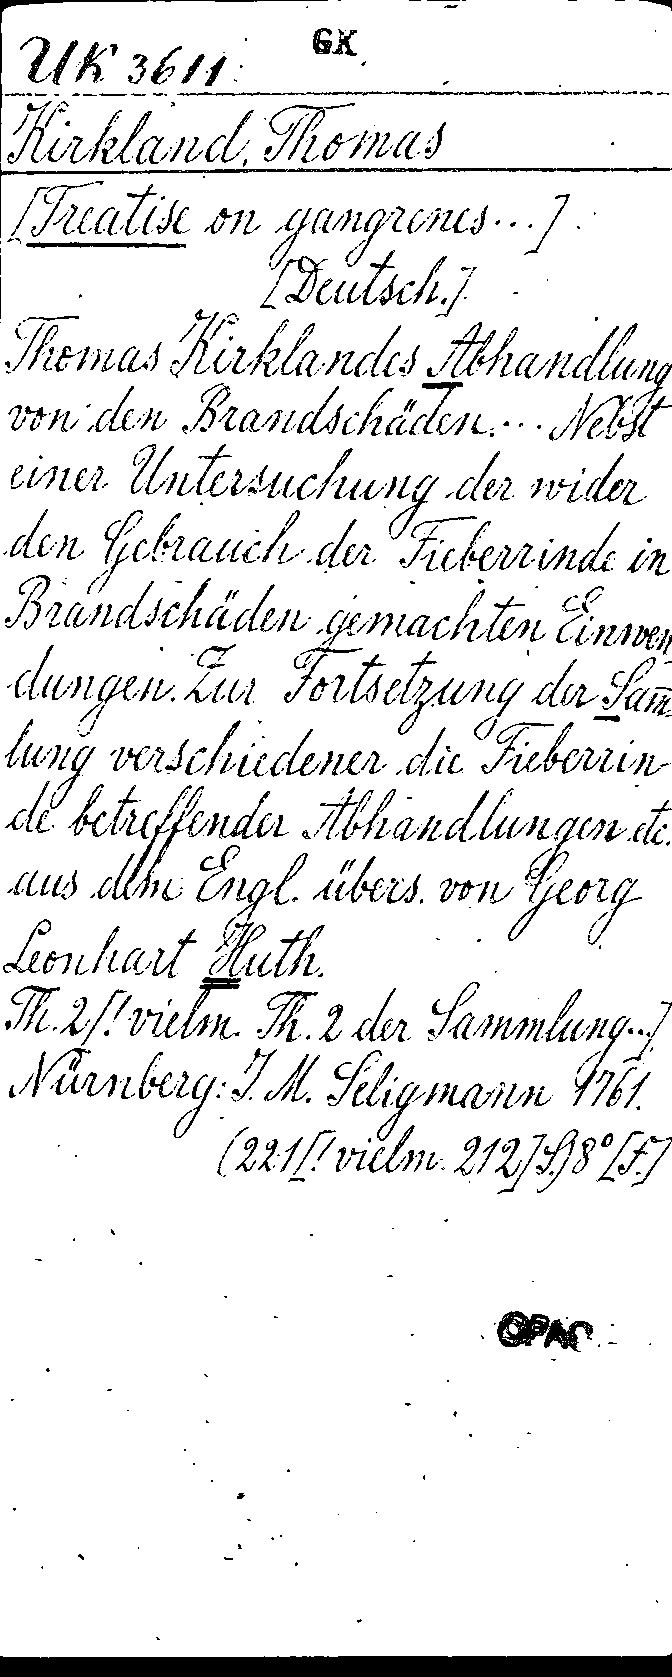 UK 3611
GK
Kirkland, Thomas
[Treatise on gangrenes...]
[Deutsch.]
Thomas Kirklandes Abhandlung
von den Brandschäden.... Nebst
einer Untersuchung der wider
den Gebrauch der Fieberrinde in
Brandschäden gemachten Einwen
dungen. Zur Fortsetzung der Sam̅-
lung verschiedener die Fieberrin
de betreffender Abhandlungen etc.
aus dem Engl. übers. von Georg
Leonhart Huth.
Th. 2 [! vielm. Th. 2 der Sammlung...]
Nürnberg: J. M. Seligmann 1761.
(221 [! vielm. 212] S.) 8° [f.]
OPAC